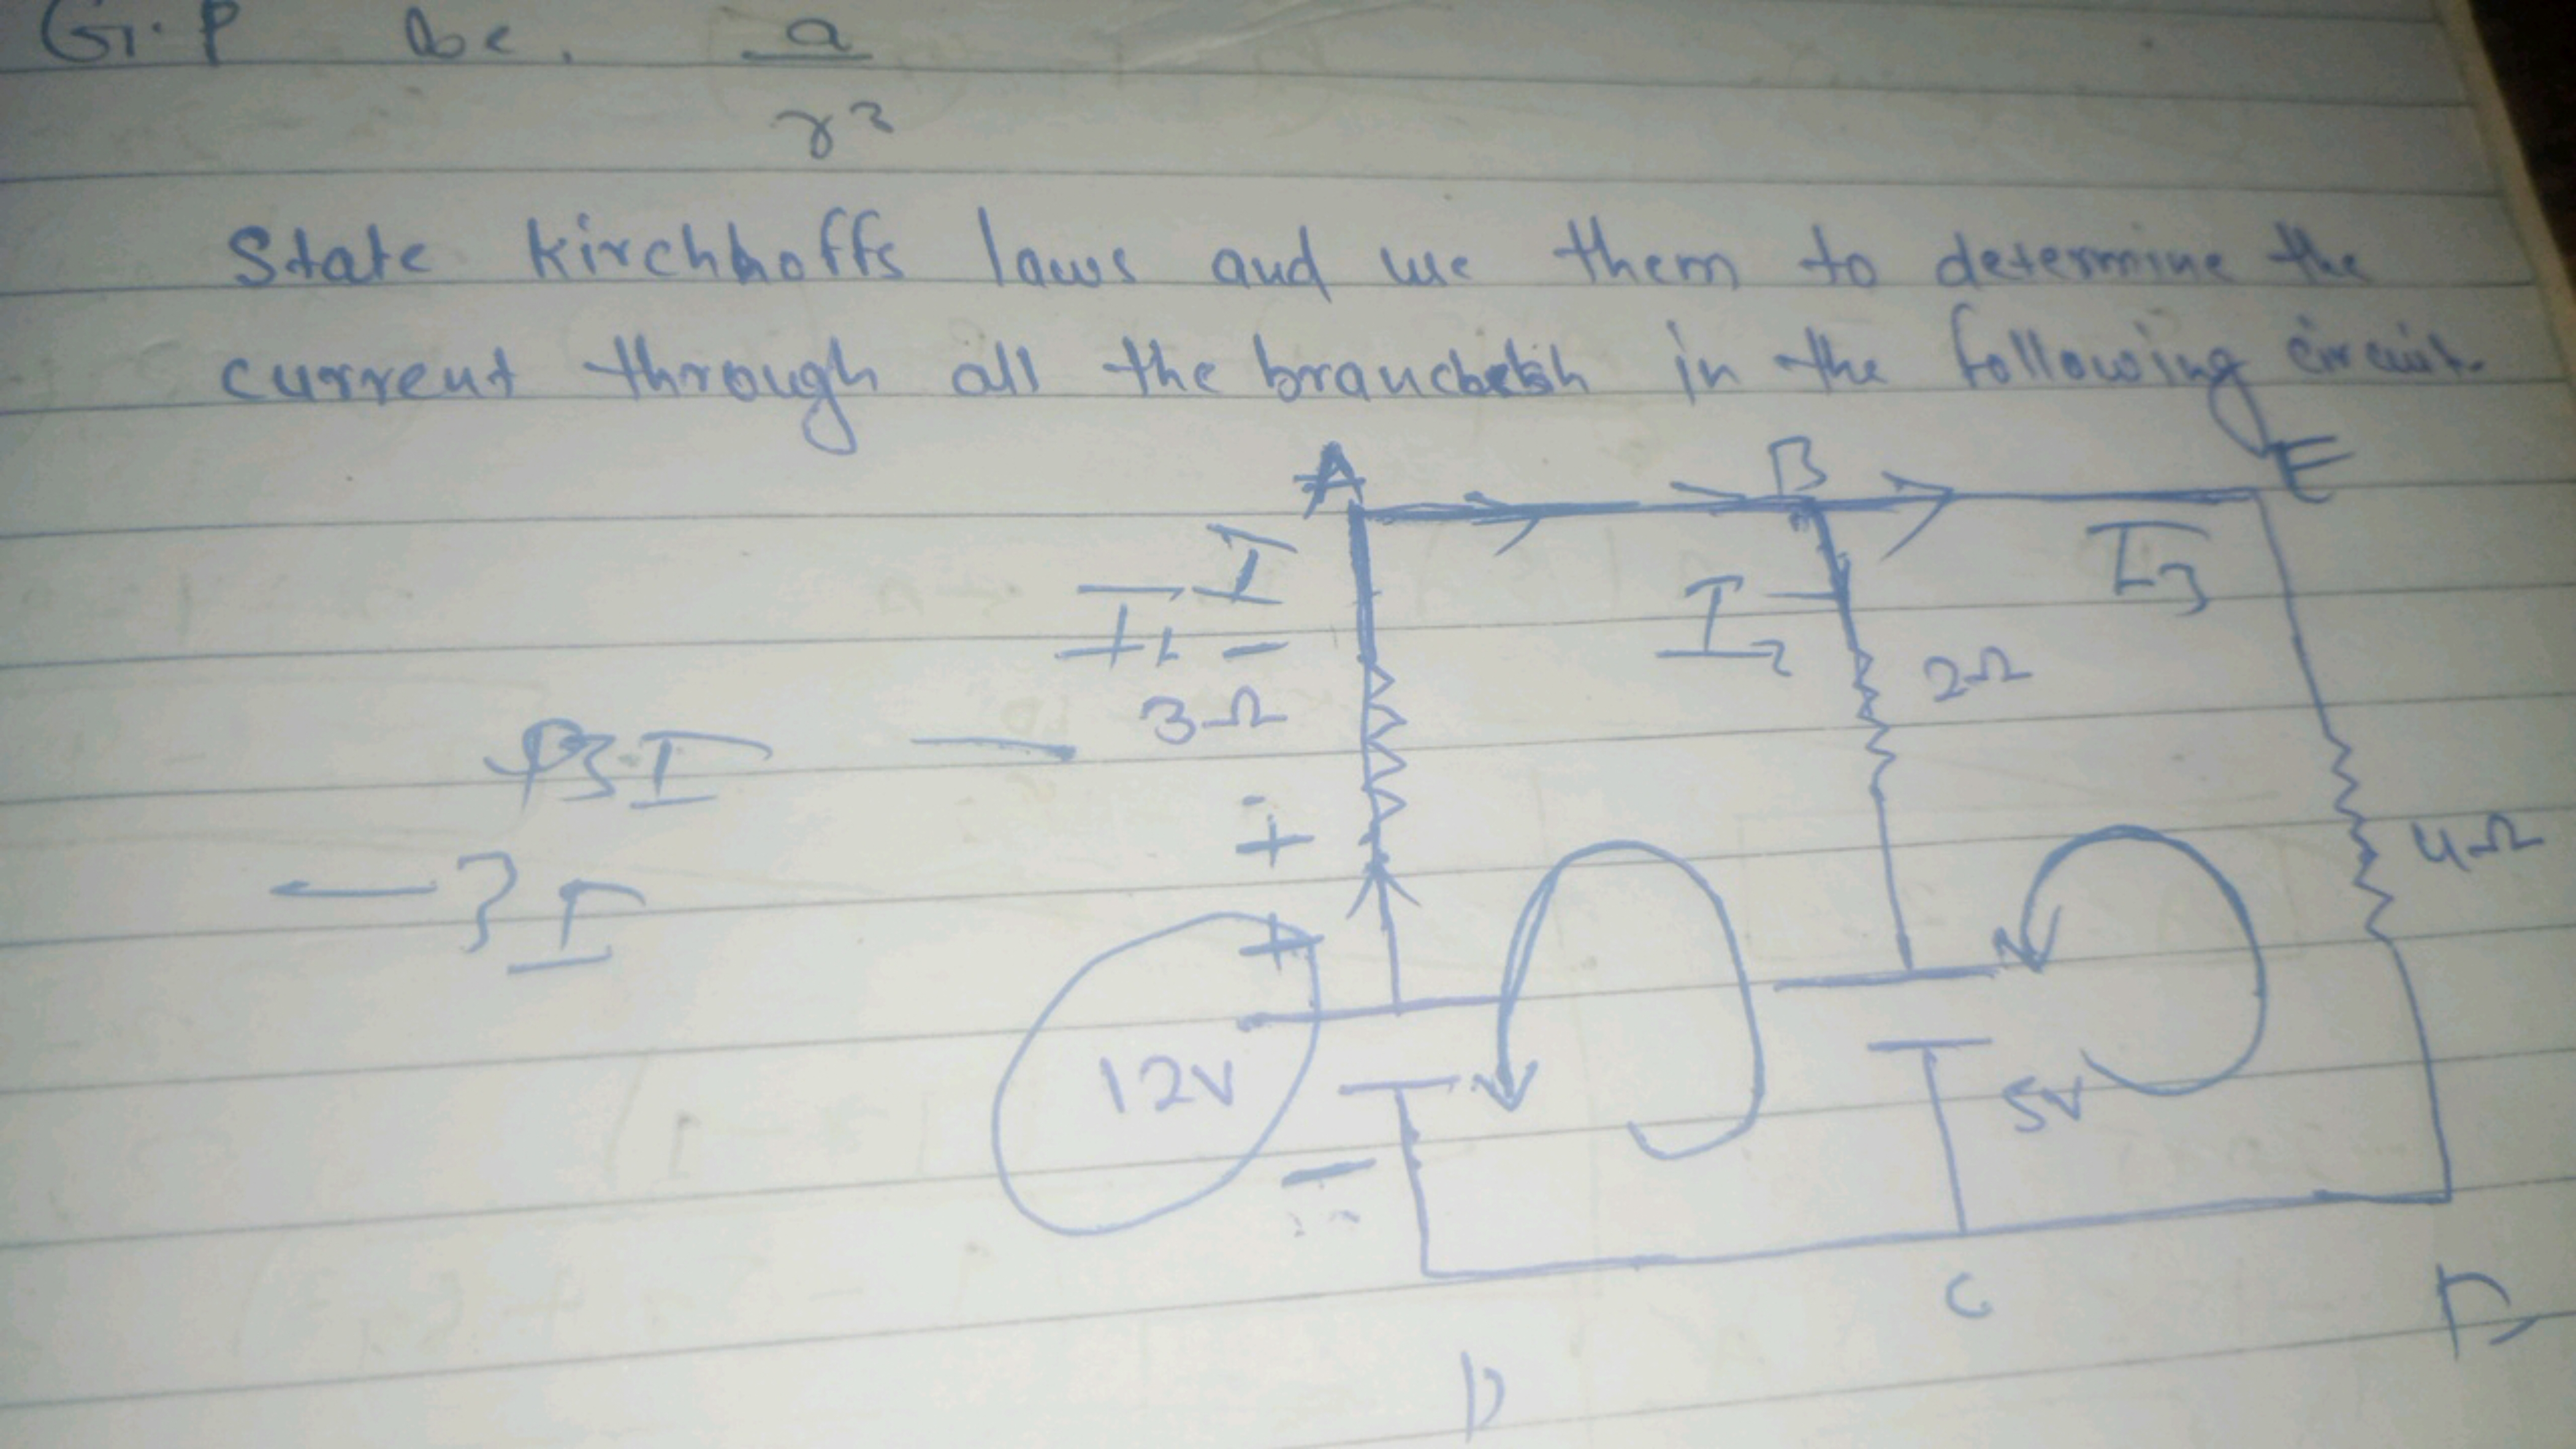 G.P be. a
r²
State Kirchhoffs laws and use them to determine the
current through all the in the following circuit.
A B E
I
I₁ - I₂ I₃
3Ω 2Ω
3I —
+ 4Ω
- 3I
+
12V 5V
-
C
D